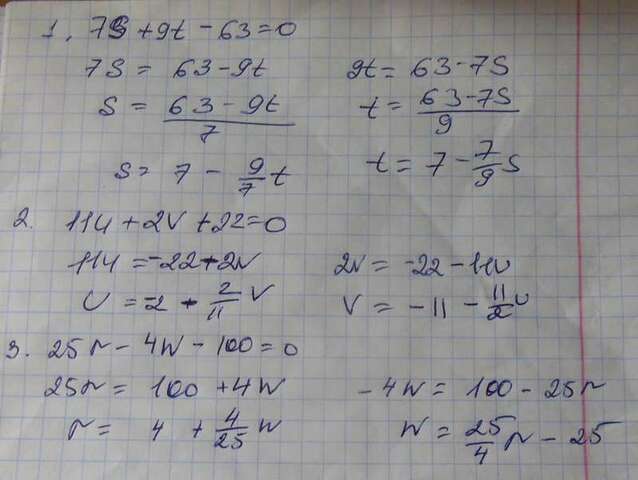 1. 7S + 9t - 63 = 0
7S = 63 - 9t    9t = 63 - 7S
S = (63 - 9t)/7    t = (63 - 7S)/9
S = 7 - 9/7 t    t = 7 - 7/9 S
2. 11U + 2V + 22 = 0
11U = -22 - 2V    2V = -22 - 11U
U = -2 - 2/11 V    V = -11 - 11/2 U
3. 25r - 4W - 100 = 0
25r = 100 + 4W    -4W = 100 - 25r
r = 4 + 4/25 W    W = 25/4 r - 25